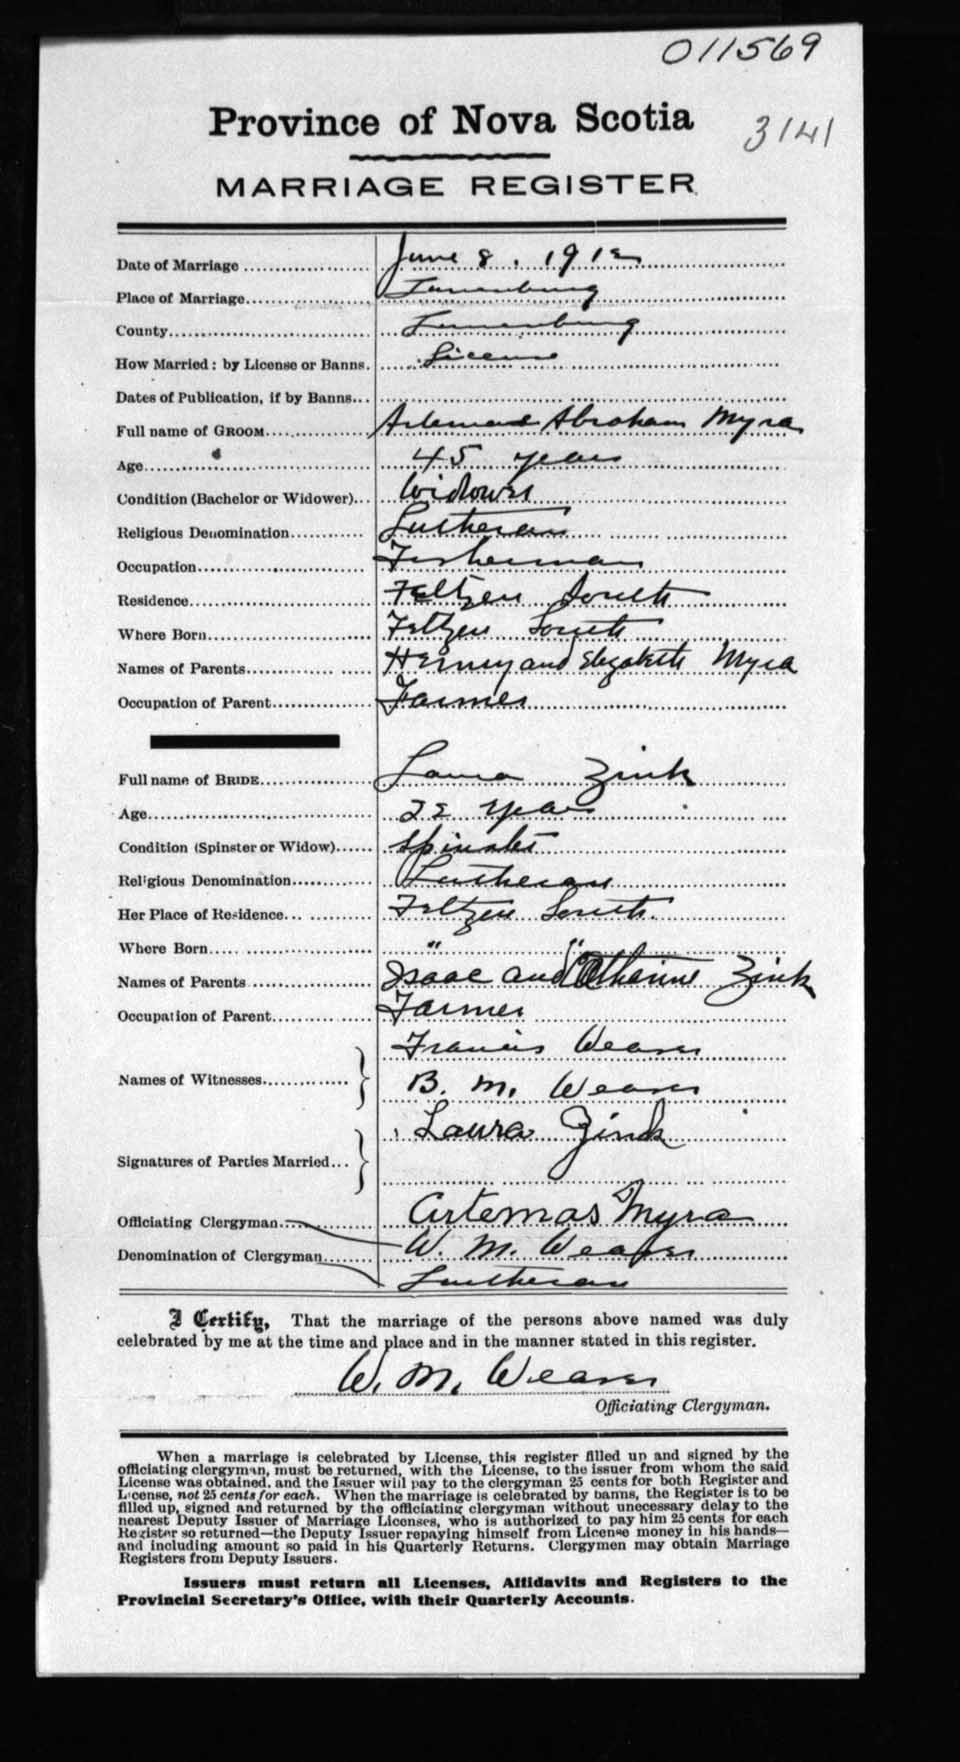 011569
Province of Nova Scotia
3141
MARRIAGE REGISTER.
Date of Marriage June 8, 1912
Place of Marriage Lunenburg
County Lunenburg
How Married: by License or Banns. License
Dates of Publication, if by Banns
Full name of GROOM Artemas Abraham Myra
Age 45 years
Condition (Bachelor or Widower) Widower
Religious Denomination Lutheran
Occupation Fisherman
Residence Feltzen South
Where Born Feltzen South
Names of Parents and Elizabeth Myra
Occupation of Parent Farmer
Full name of BRIDE Laura Zink
Age years
Condition (Spinster or Widow) Spinster
Religious Denomination Lutheran
Her Place of Residence Feltzen South
Where Born " "
Names of Parents Isaac and Catherine Zink
Occupation of Parent Farmer
Francis Weaver
Names of Witnesses
B. M. Weaver
Laura Zink
Signatures of Parties Married
Officiating Clergyman Artemas Myra
Denomination of Clergyman W. M. Weaver
Lutheran
I Certify, That the marriage of the persons above named was duly
celebrated by me at the time and place and in the manner stated in this register.
W. M. Weaver
Officiating Clergyman.
When a marriage is celebrated by License, this register filled up and signed by the
officiating clergyman, must be returned, with the License, to the issuer from whom the said
License was obtained, and the Issuer will pay to the clergyman 25 cents for both Register and
License, not 25 cents for each. When the marriage is celebrated by banns, the Register is to be
filled up, signed and returned by the officiating clergyman without unnecessary delay to the
nearest Deputy Issuer of Marriage Licenses, who is authorized to pay him 25 cents for each
Register so returned—the Deputy Issuer repaying himself from License money in his hands—
and including amount so paid in his Quarterly Returns. Clergymen may obtain Marriage
Registers from Deputy Issuers.
Issuers must return all Licenses, Affidavits and Registers to the
Provincial Secretary's Office, with their Quarterly Accounts.